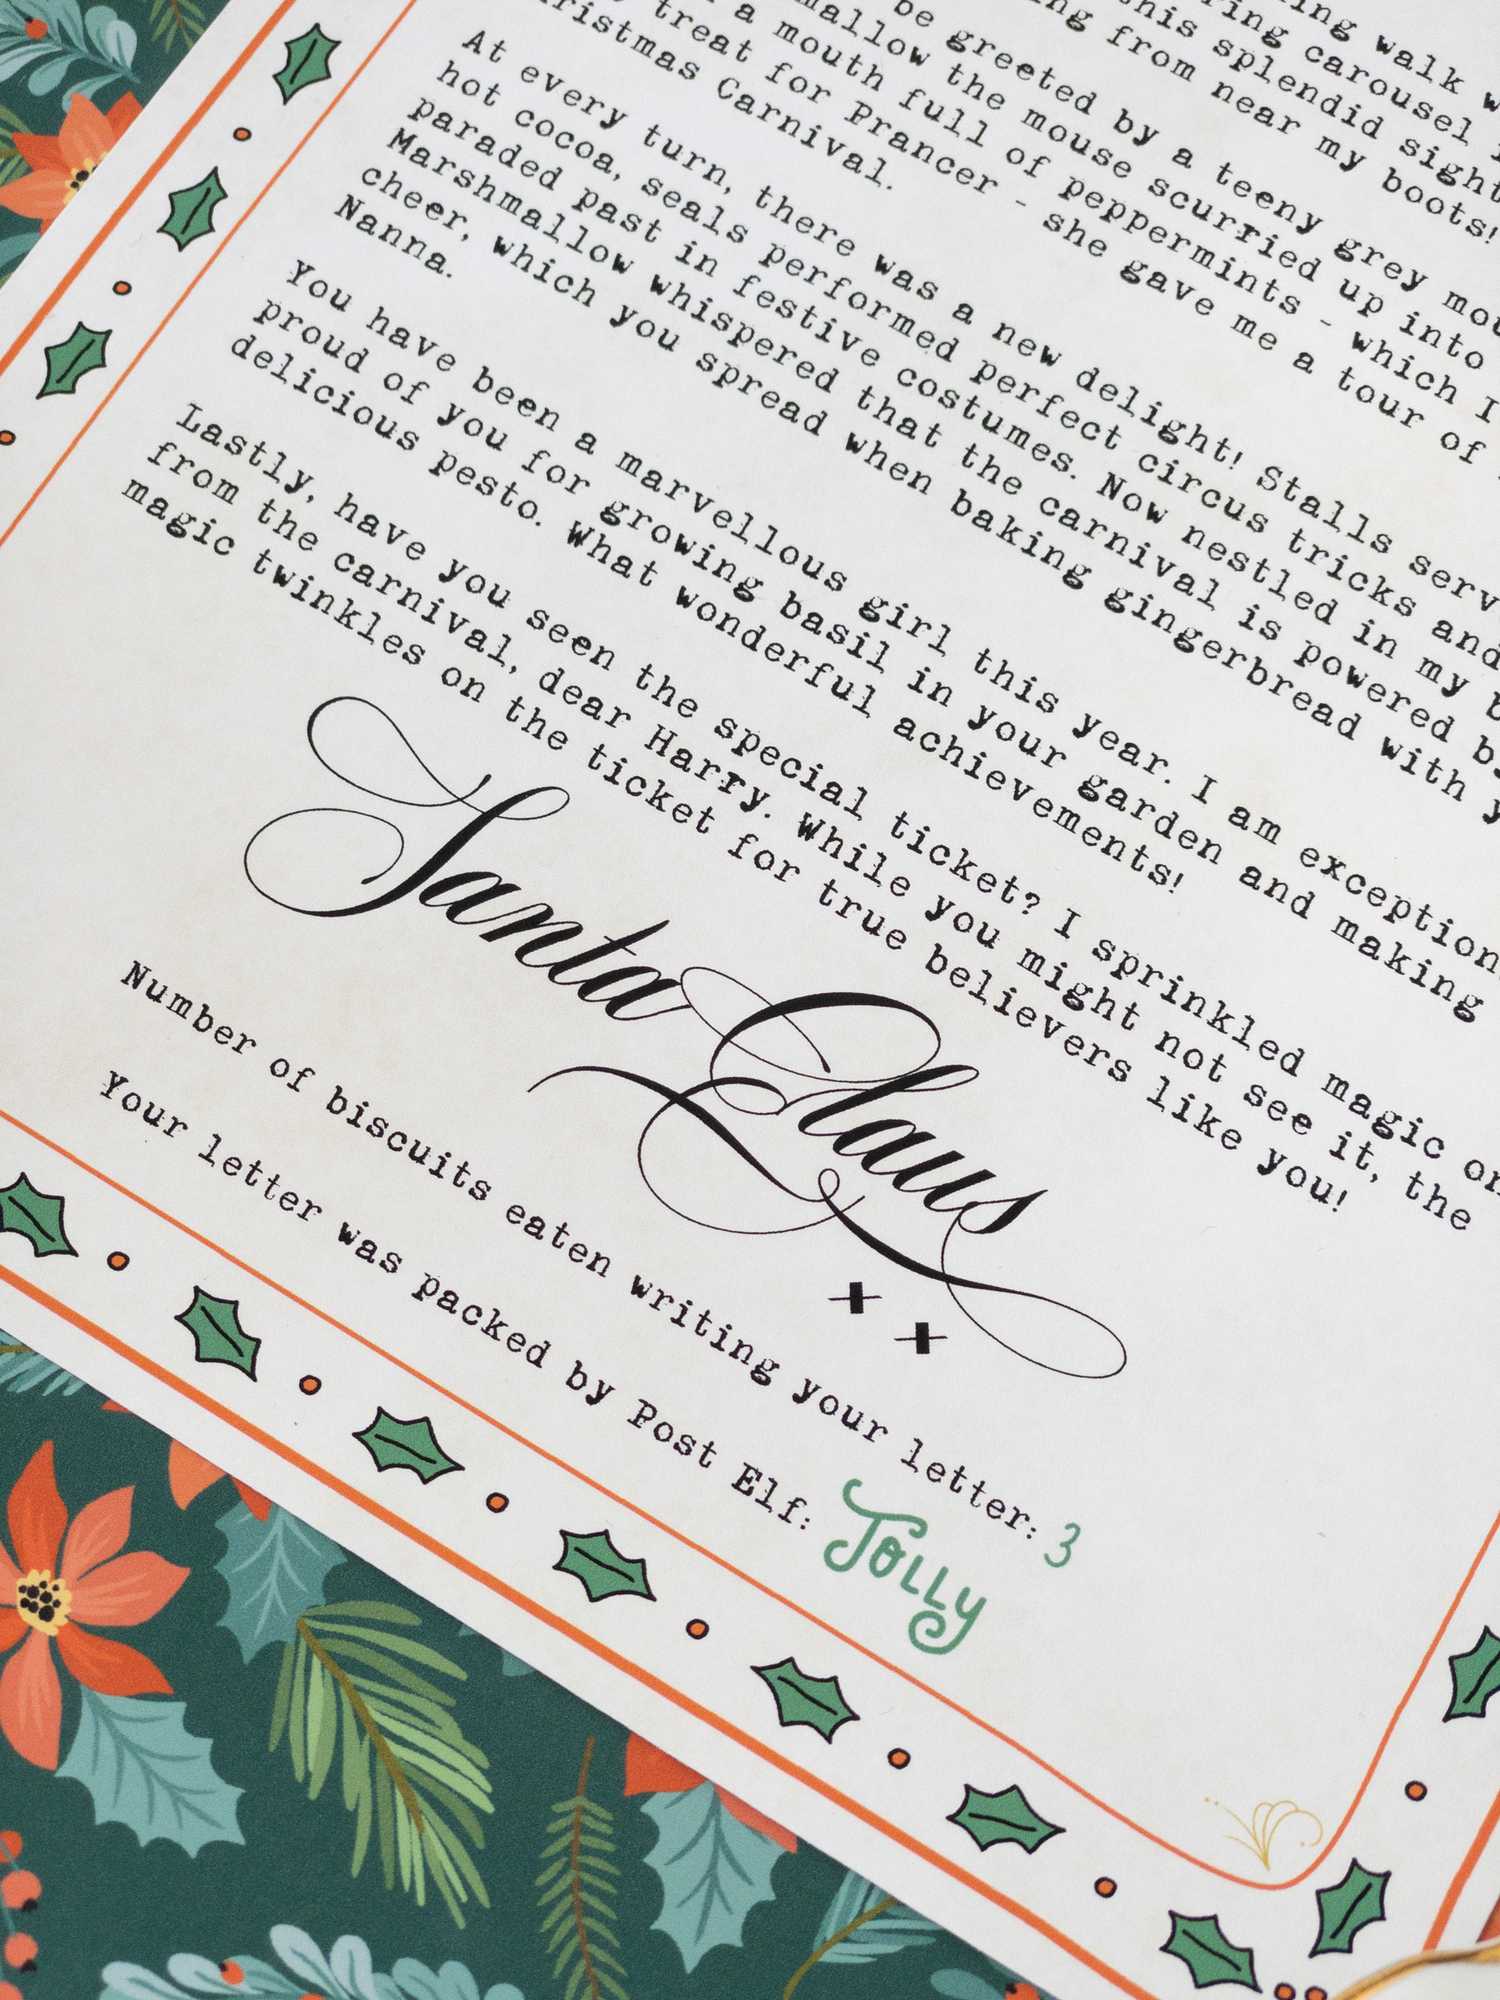 walk
carousel
this splendid sight
from near my boots!
be greeted by a teeny grey
the mouse scurried up into
a mouth full of peppermints - which I
treat for Prancer - she gave me a tour of
Carnival.
At every turn, there was a new delight! Stalls
hot cocoa, seals performed perfect circus tricks and
paraded past in festive costumes. Now nestled in my
Marshmallow whispered that the carnival is powered
cheer, which you spread when baking gingerbread with
Nanna.
You have been a marvellous girl this year. I am
proud of you for growing basil in your garden and making
delicious pesto. What wonderful achievements!
Lastly, have you seen the special ticket? I sprinkled magic on
from the carnival, dear Harry. While you might not see it, the
magic twinkles on the ticket for true believers like you!
Santa Claus
x x
Number of biscuits eaten writing your letter: 3
Your letter was packed by Post Elf: JOLLY